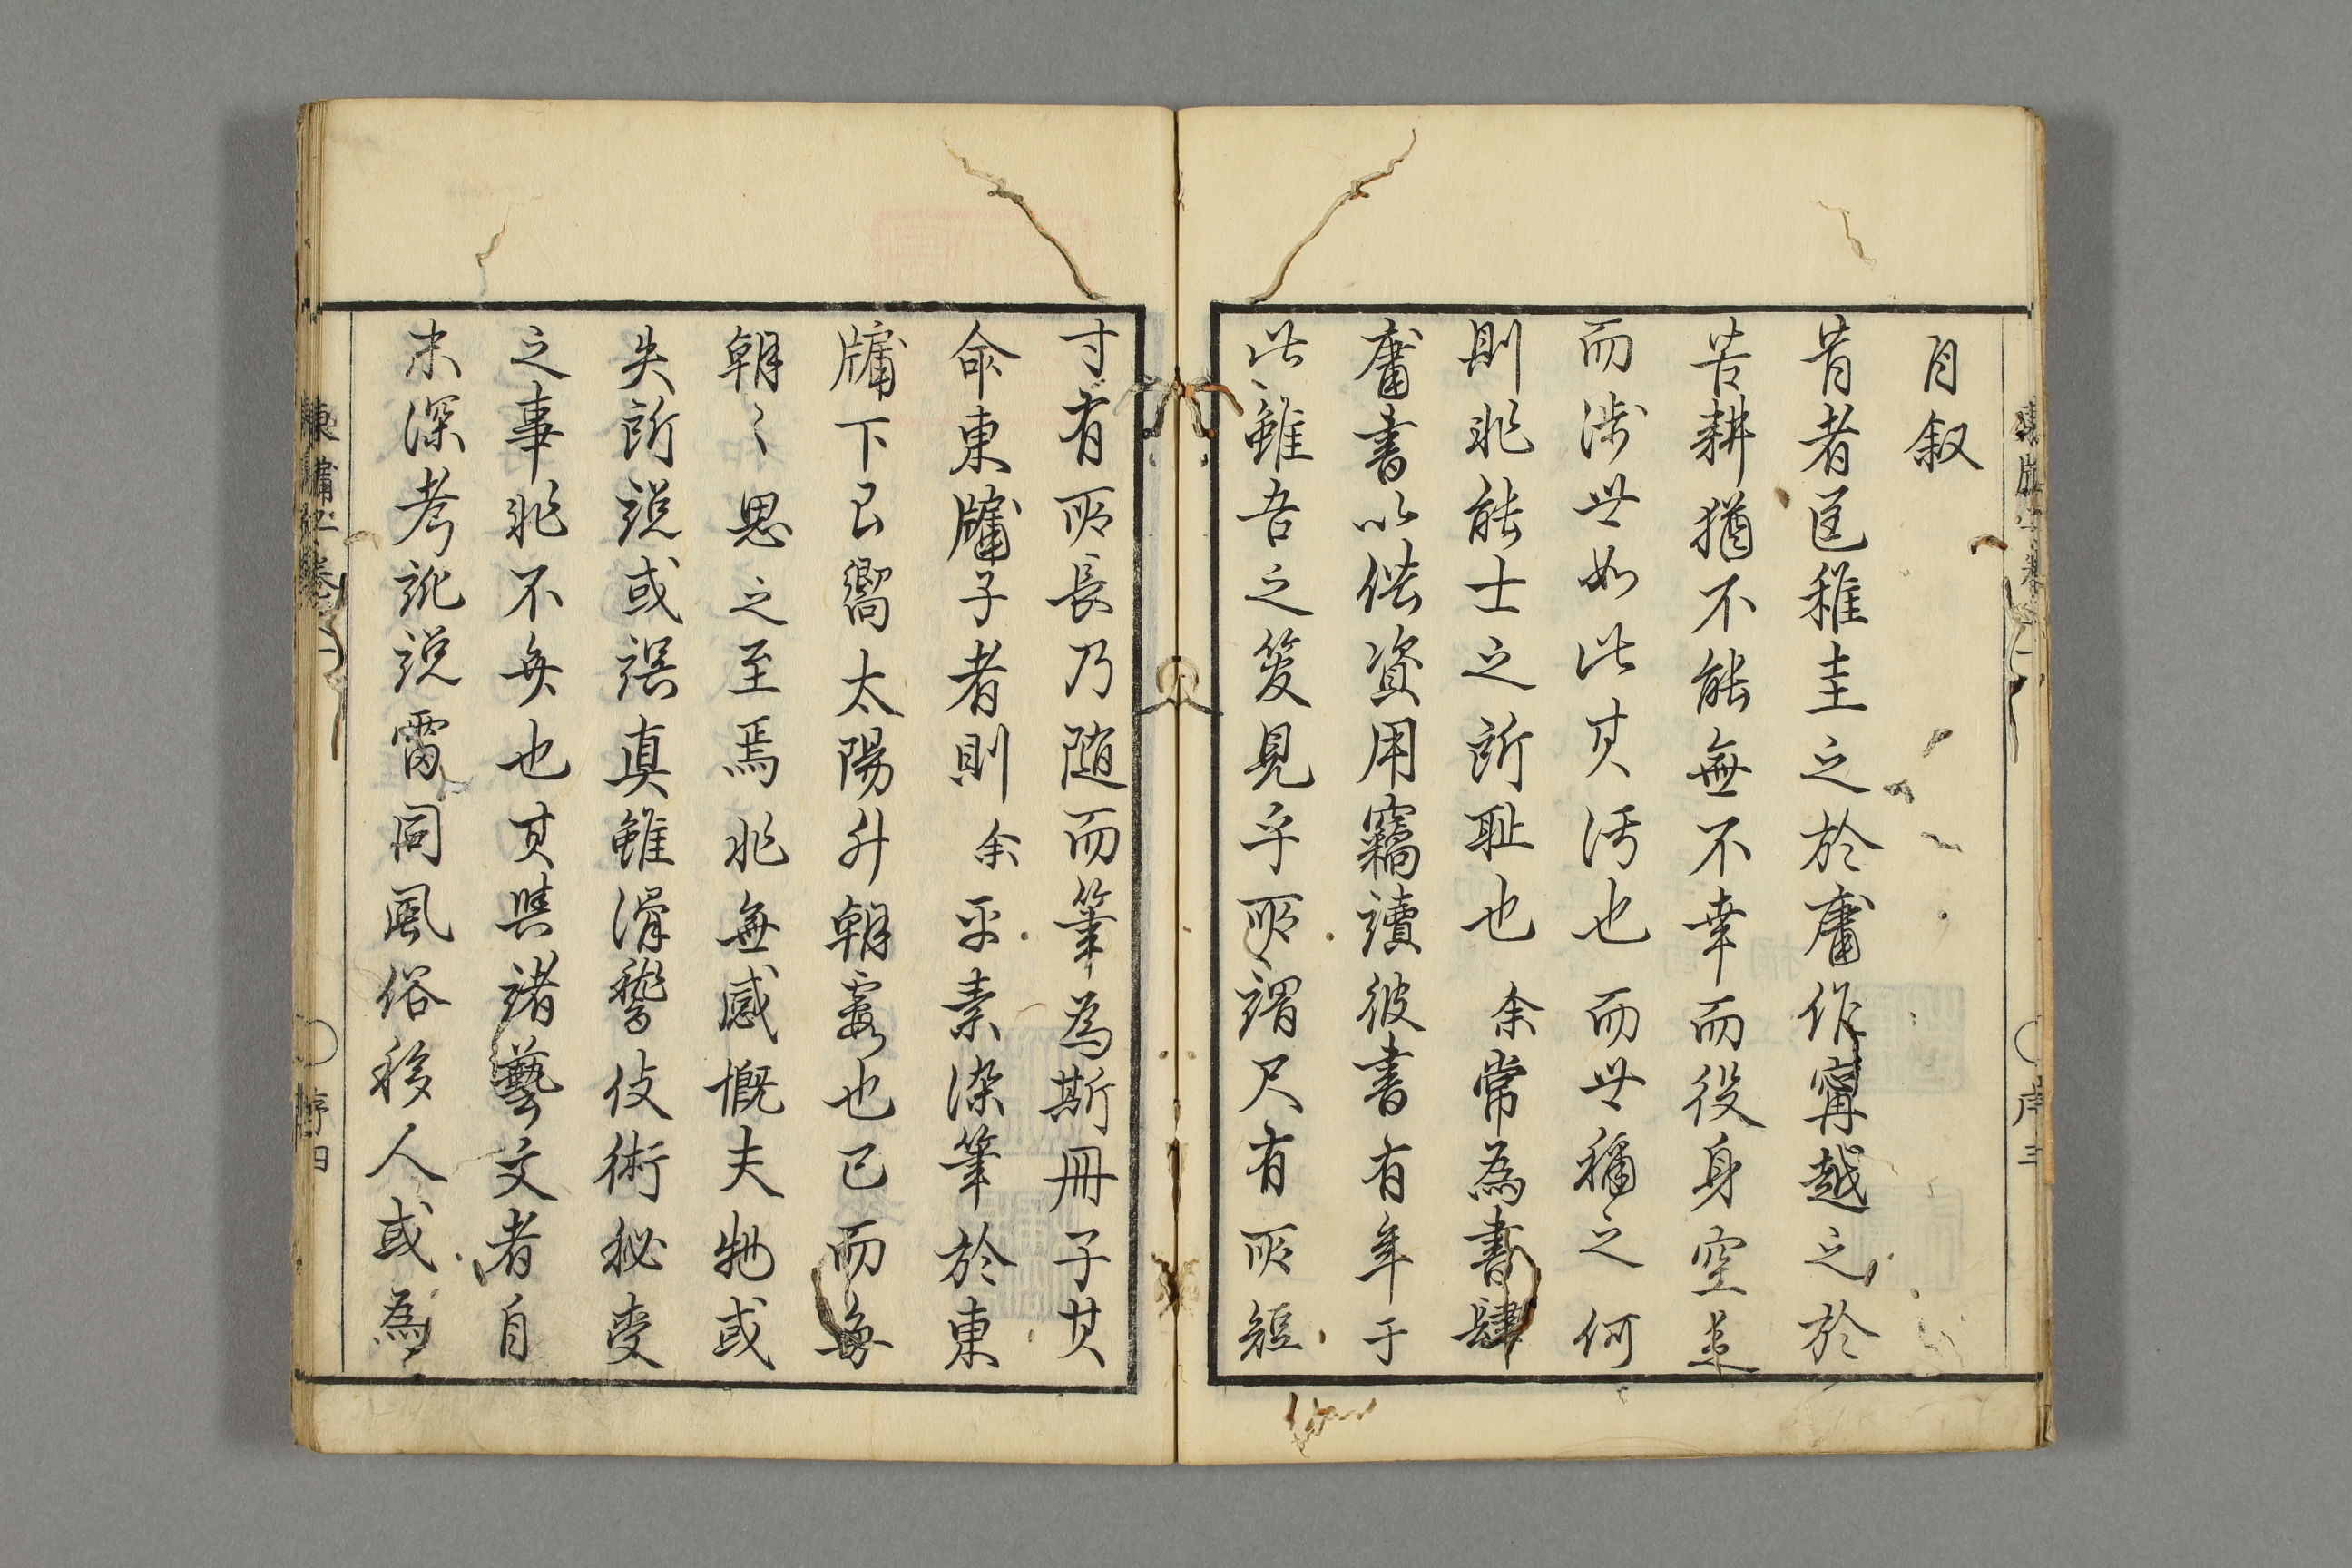 自叙
昔者匡稚圭之於庸作甯越之於
苦耕猶不能無不幸而役身空乏
而渉世如此其汚也而世稱之何
則非能士之所耻也余常為書肆
庸書以供資用竊讀彼書有年于
此雖吾之管見乎所謂尺有所短
寸有所長乃随而筆為斯冊子其
命東牖子者則余平素染筆於東
牖下已嚮太陽升朝霞也已而每
朝〻思之至焉非無感慨夫物或
失所説或誤真雖滑稽伎術秘変
之事非不無也其與諸藝文者自
未深考訛説雷同風俗移人或為
東牖子巻之一
〇序四
〇序三